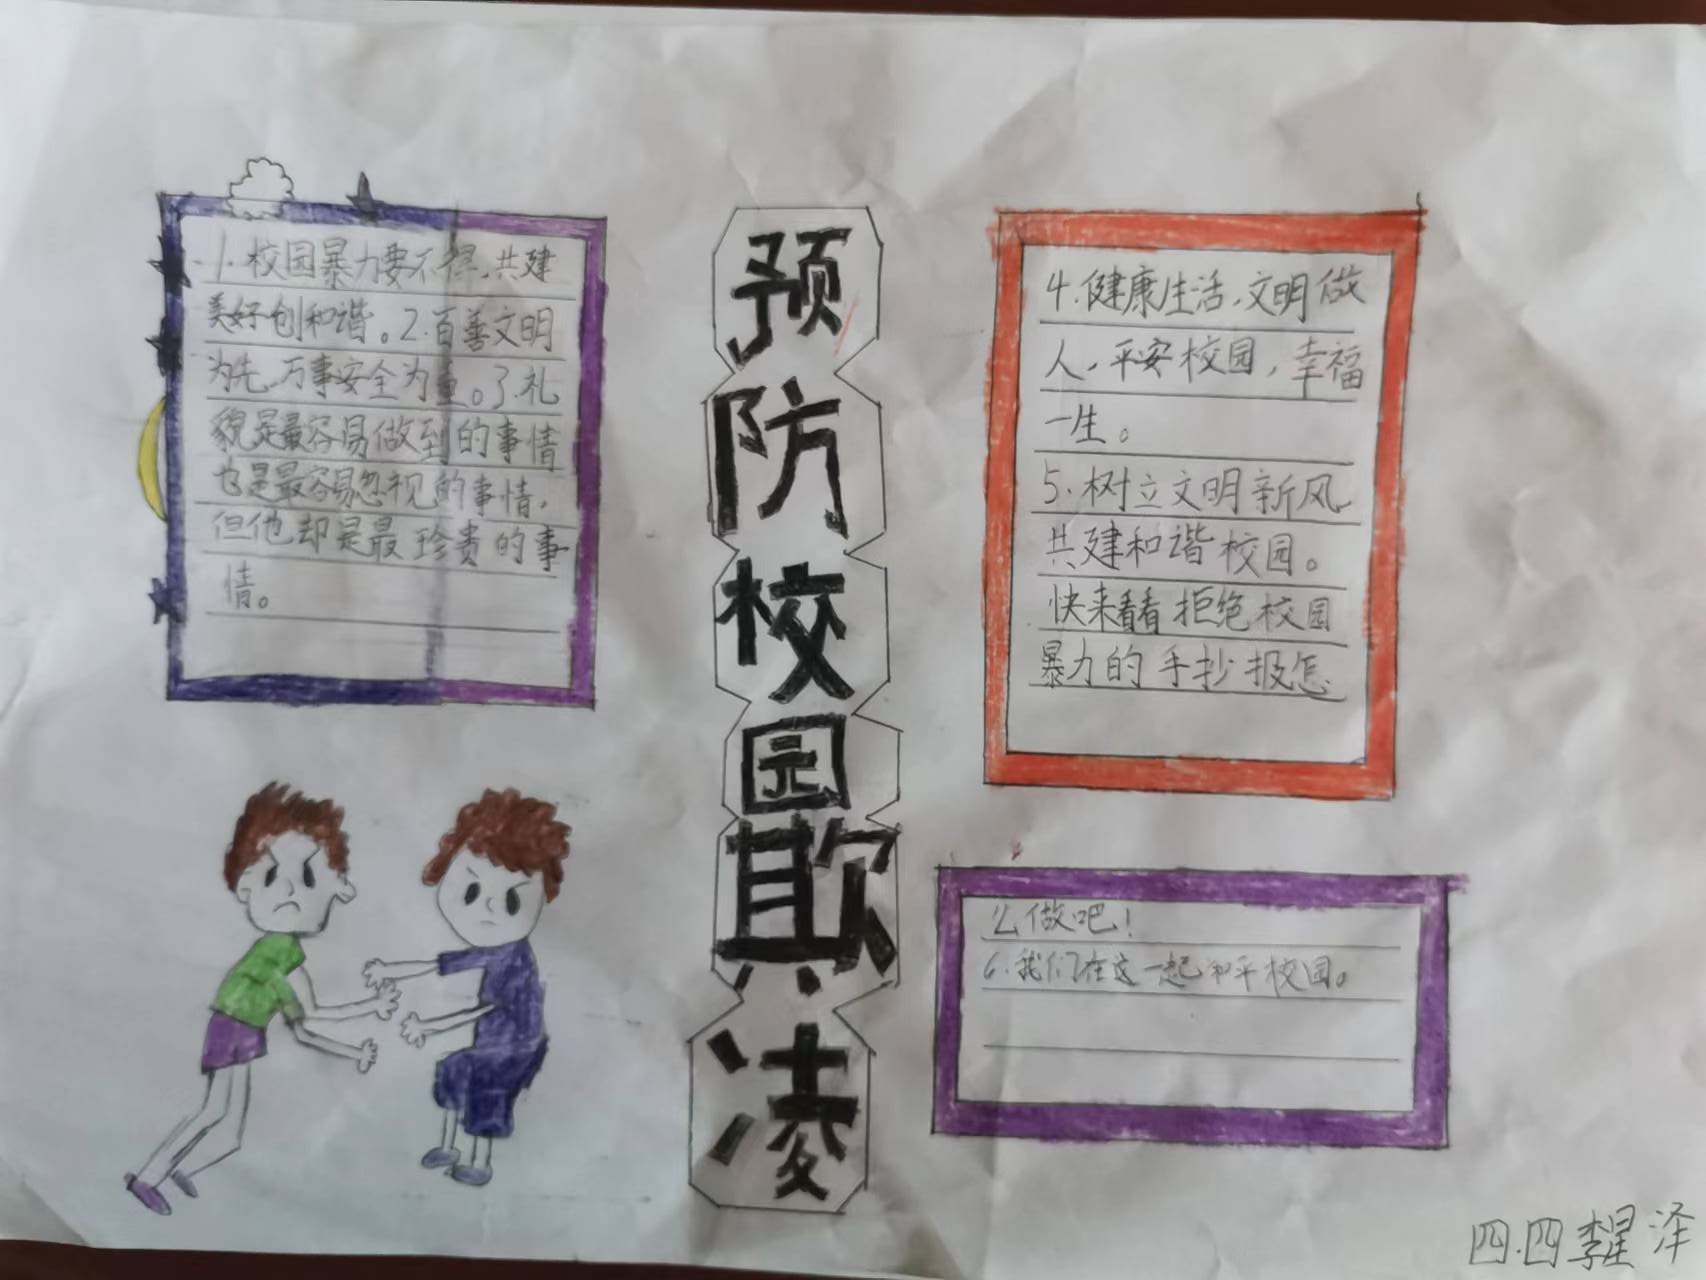 1.校园暴力要不得,共建
美好创和谐。2.百善文明
为先,万事安全为重。3.礼
貌是最容易做到的事情
也是最容易忽视的事情,
但他却是最珍贵的事
情。
预
防
校
园
欺
凌
4.健康生活,文明做
人,平安校园,幸福
一生。
5.树立文明新风
共建和谐校园。
快来看看拒绝校园
暴力的手抄报怎
么做吧!
6.我们在这一起和平校园。
四.四李星泽